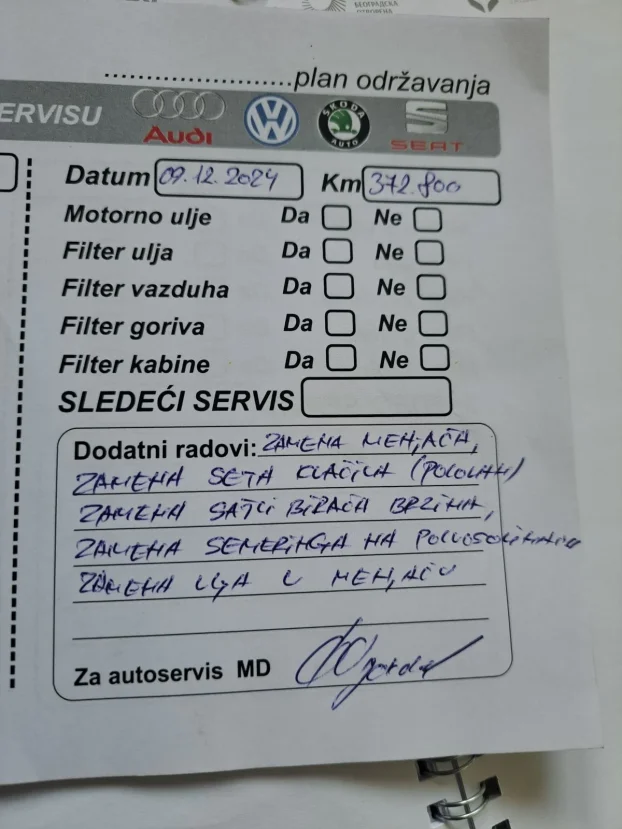 БЕОГРАДСКА
....................plan održavanja
ERVISU
Audi
ŠKODA
AUTO
SEAT
Datum 09.12.2024 Km 372.800
Motorno ulje Da Ne
Filter ulja Da Ne
Filter vazduha Da Ne
Filter goriva Da Ne
Filter kabine Da Ne
SLEDEĆI SERVIS
Dodatni radovi: ZAMENA MENJAČA,
ZAMENA SETA KVAČILA (POLOVAN)
ZAMENA SAJLI BIRAČA BRZINA,
ZAMENA SEMERINGA NA POLUOSOVINAMA
ZAMENA ULJA U MENJAČU
Za autoservis MD